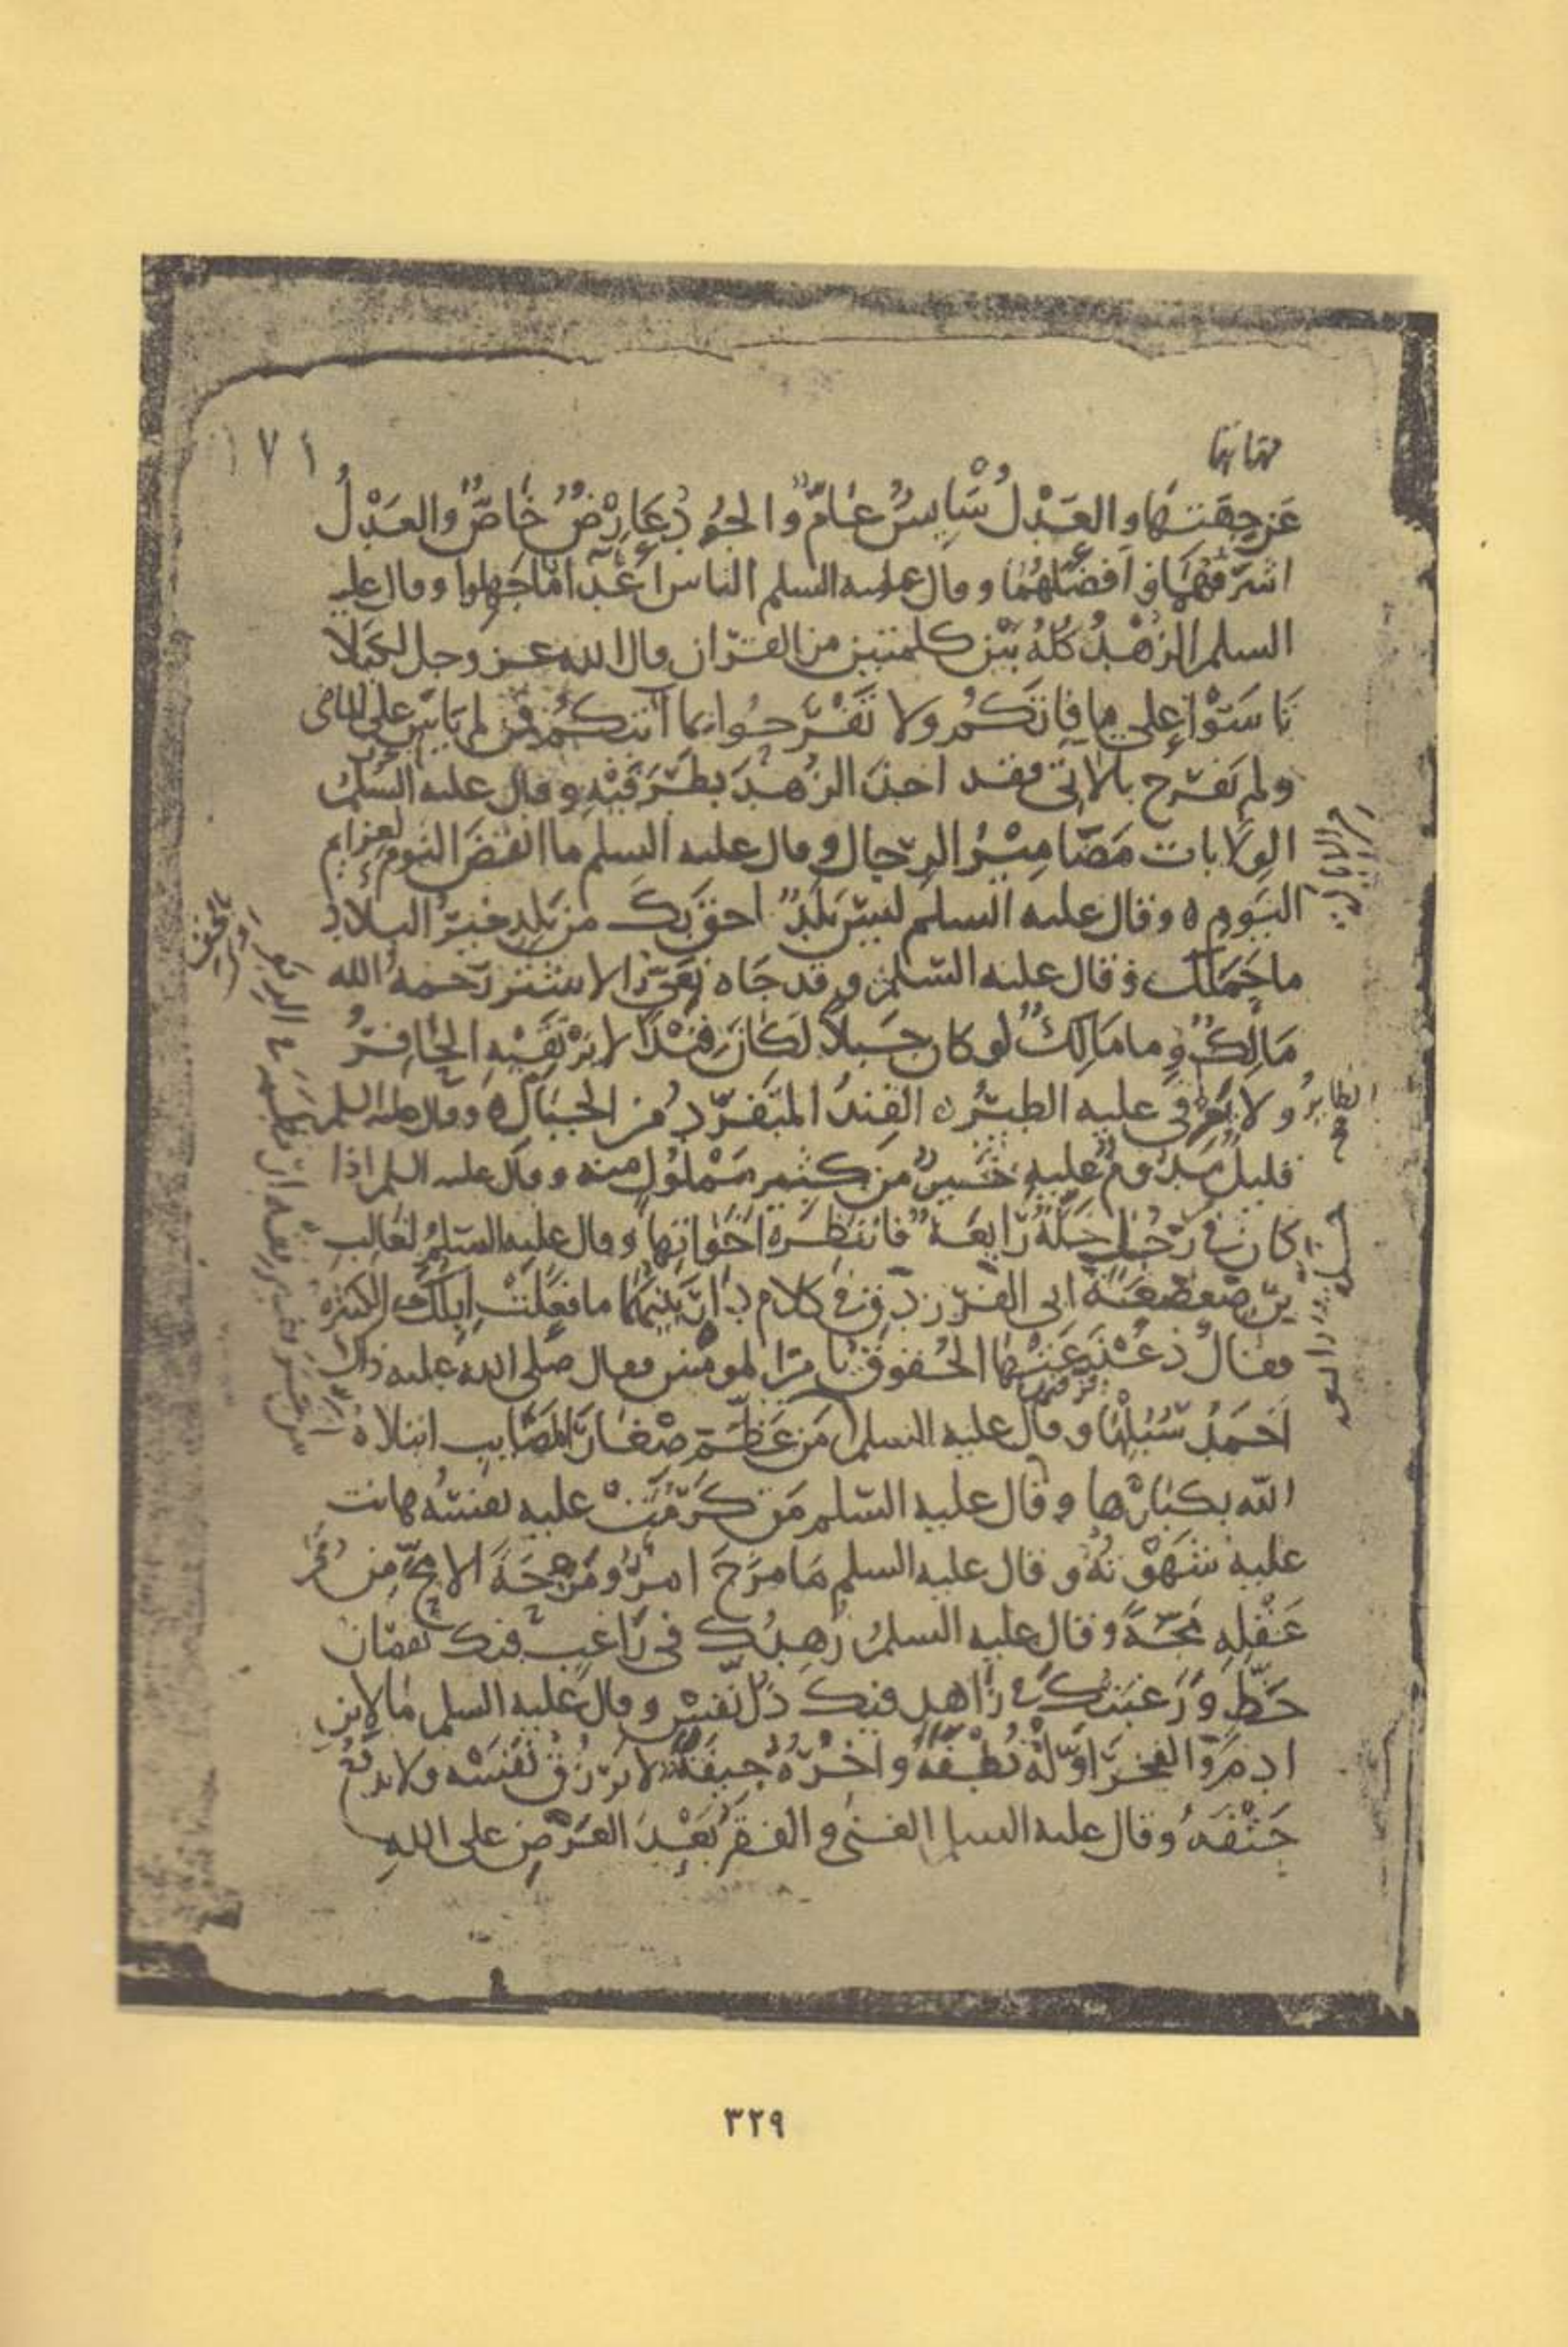 ١٧١
عن جهتها والعدل سايس عام والجود عارض خاص والعدل
اشرفهما وافضلهما وقال عليه السلم الناس اعدآ ما جهلوا وقال عليه
السلم الزهد كله بين كلمتين من القرآن قال الله عز وجل لكيلا
تاسوا على ما فاتكم ولا تفرحوا بما آتيكم فمن لم ياس على الماضي
ولم يفرح بالآتي فقد اخذ الزهد بطرفيه وقال عليه السلم
الولايات مضامير الرجال وقال عليه السلم ما انقض النوم لعزايم
اليوم ٥ وقال عليه السلم ليس بلد احق بك من بلد خير البلاد
ما حملك وقال عليه السلم وقد جاه نعي الاشتر رحمه الله
مالك وما مالك لو كان جبلا لكان فندا لا يرتقيه الحافر
ولا يوفي عليه الطير ٥ الفند المتفرد من الجبال ٥ وقال عليه السلم
قليل مدوم عليه خير من كثير مملول منه وقال عليه السلم اذا
كان في رجل خلة رايعة فانتظره اخواتها وقال عليه السلم لغالب
بن صعصعة ابي الفرزدق في كلام دار بينهما ما فعلت ابلك الكثيرة
فقال ذعذعتها الحقوق يا امير المومنين فقال صلى الله عليه ذاك
احمد سبلها وقال عليه السلم من عظم صغار المصايب ابتلاه
الله بكبارها وقال عليه السلم من كرمت عليه نفسه هانت
عليه شهوته وقال عليه السلم ما مزح امرؤ مزحة الا مج من
عقله مجة وقال عليه السلم زهدك في راغب فيك نقصان
حظ ورغبتك في زاهد فيك ذل نفس وقال عليه السلم ما لابن
ادم والفخر اوله نطفة وآخره جيفة لا يرزق نفسه ولا يدفع
حتفه وقال عليه السلم الغنى والفقر بعد العرض على الله
الطاير
صح
٣٢٩